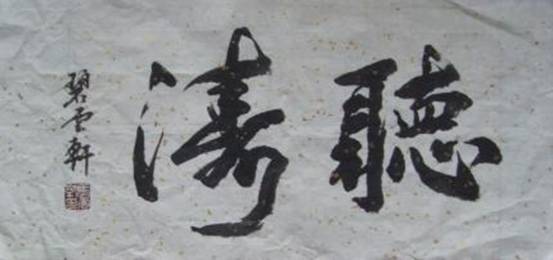 聽濤
碧雲軒